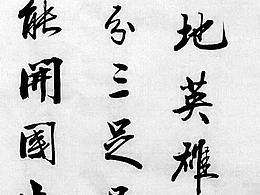 地英雄
分三足
能開國